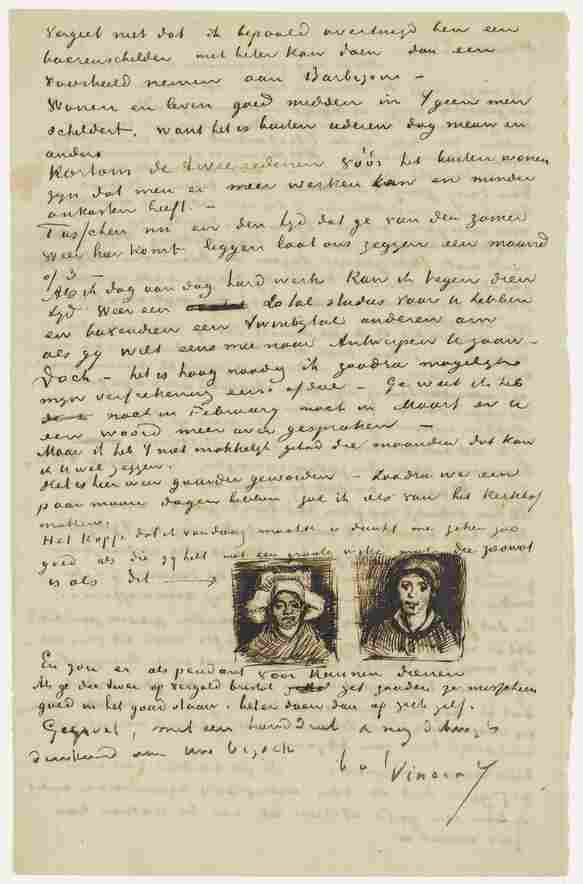 Vergeet niet dat ik bepaald overtuigd ben een
boerenschilder niet beter kan doen dan een
voorbeeld nemen aan Barbizon –
Wonen en leven goed midden in 't geen men
schildert. Want het is buiten iederen dag nieuw en
anders
Kortom de twee redenen vóór het buiten wonen
zijn dat men er meer werken kan en minder
onkosten heeft. –
Tusschen nu en den tijd dat ge van den zomer
weer hier komt liggen laat ons zeggen een maand
of 3 –
Als ik dag aan dag hard werk kan ik tegen dien
tijd weer een 20tal studies voor U hebben
en bovendien een twintigtal anderen om
als gij wilt eens mee naar Antwerpen te gaan –
Doch – het is hoog noodig ik zoodra mogelijk
mijn verfrekening eens afdoe – Ge weet ik heb
noch in February noch in Maart er U
een woord meer over gesproken –
Maar ik heb 't niet makkelijk gehad die maanden dat kan
ik U wel zeggen.
Het is hier weer guurder geworden – Zoodra we een
paar mooie dagen hebben zal ik iets van het Kerkhof
maken.
Het kopje dat ik vandaag maakte is dunkt me zeker zoo
goed als die gij hebt met een groote witte muts die zoowat
is als dit
En zou er als pendant voor kunnen dienen
Als ge die twee op verguld bristol zet zouden ze misschien
goed in het goud staan. beter doen dan op zich zelf.
Gegroet, met een handdruk & nog dikwijls
denkend aan uw bezoek
t. à t.
Vincent